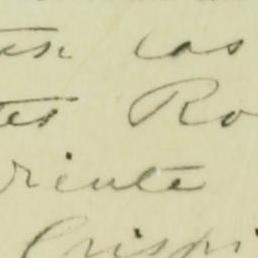 las
tes Ro
riente
Crispi